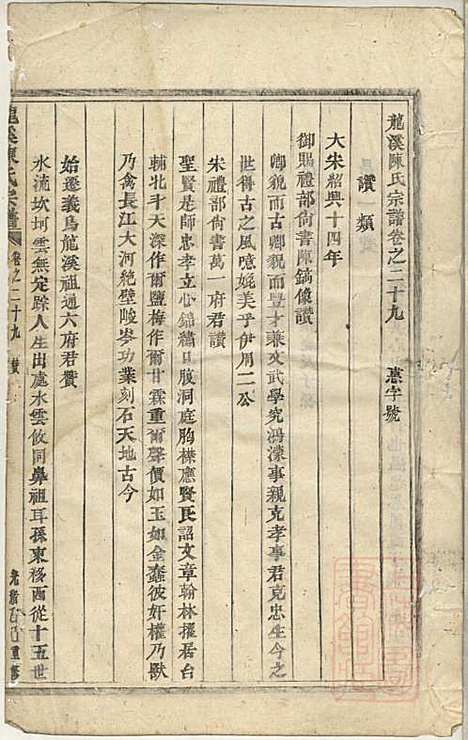 龍溪陳氏宗譜卷之二十九 惠字號
讚類
大宋紹興十四年
御賜禮部尚書陳鎬像讚
卿貌而古卿貌而豐才兼文武學究鴻濛事親克孝事君克忠生今之
世得古之風噫媲美乎伊周二公
宋禮部尚書萬一府君讚
聖賢是師忠孝立心錦繡口腹洞庭胸襟應賢良詔文章翰林擢居台
輔北斗天深作爾鹽梅作爾甘霖重爾聲價如玉如金蠢彼奸權乃獸
乃禽長江大河絶壁峻岑功業刻石天地古今
始遷義烏龍溪祖通六府君贊
水流坎坷雲無定踪人生出處水雲攸同鼻祖耳孫東移西從十五世
龍溪陳氏宗譜 卷之二十九 讚
光緒 重修